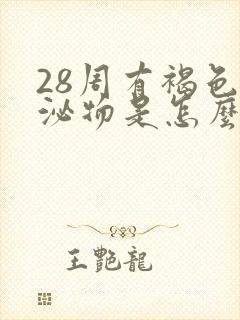 28周有褐色
泌物是怎麼
王艷龍